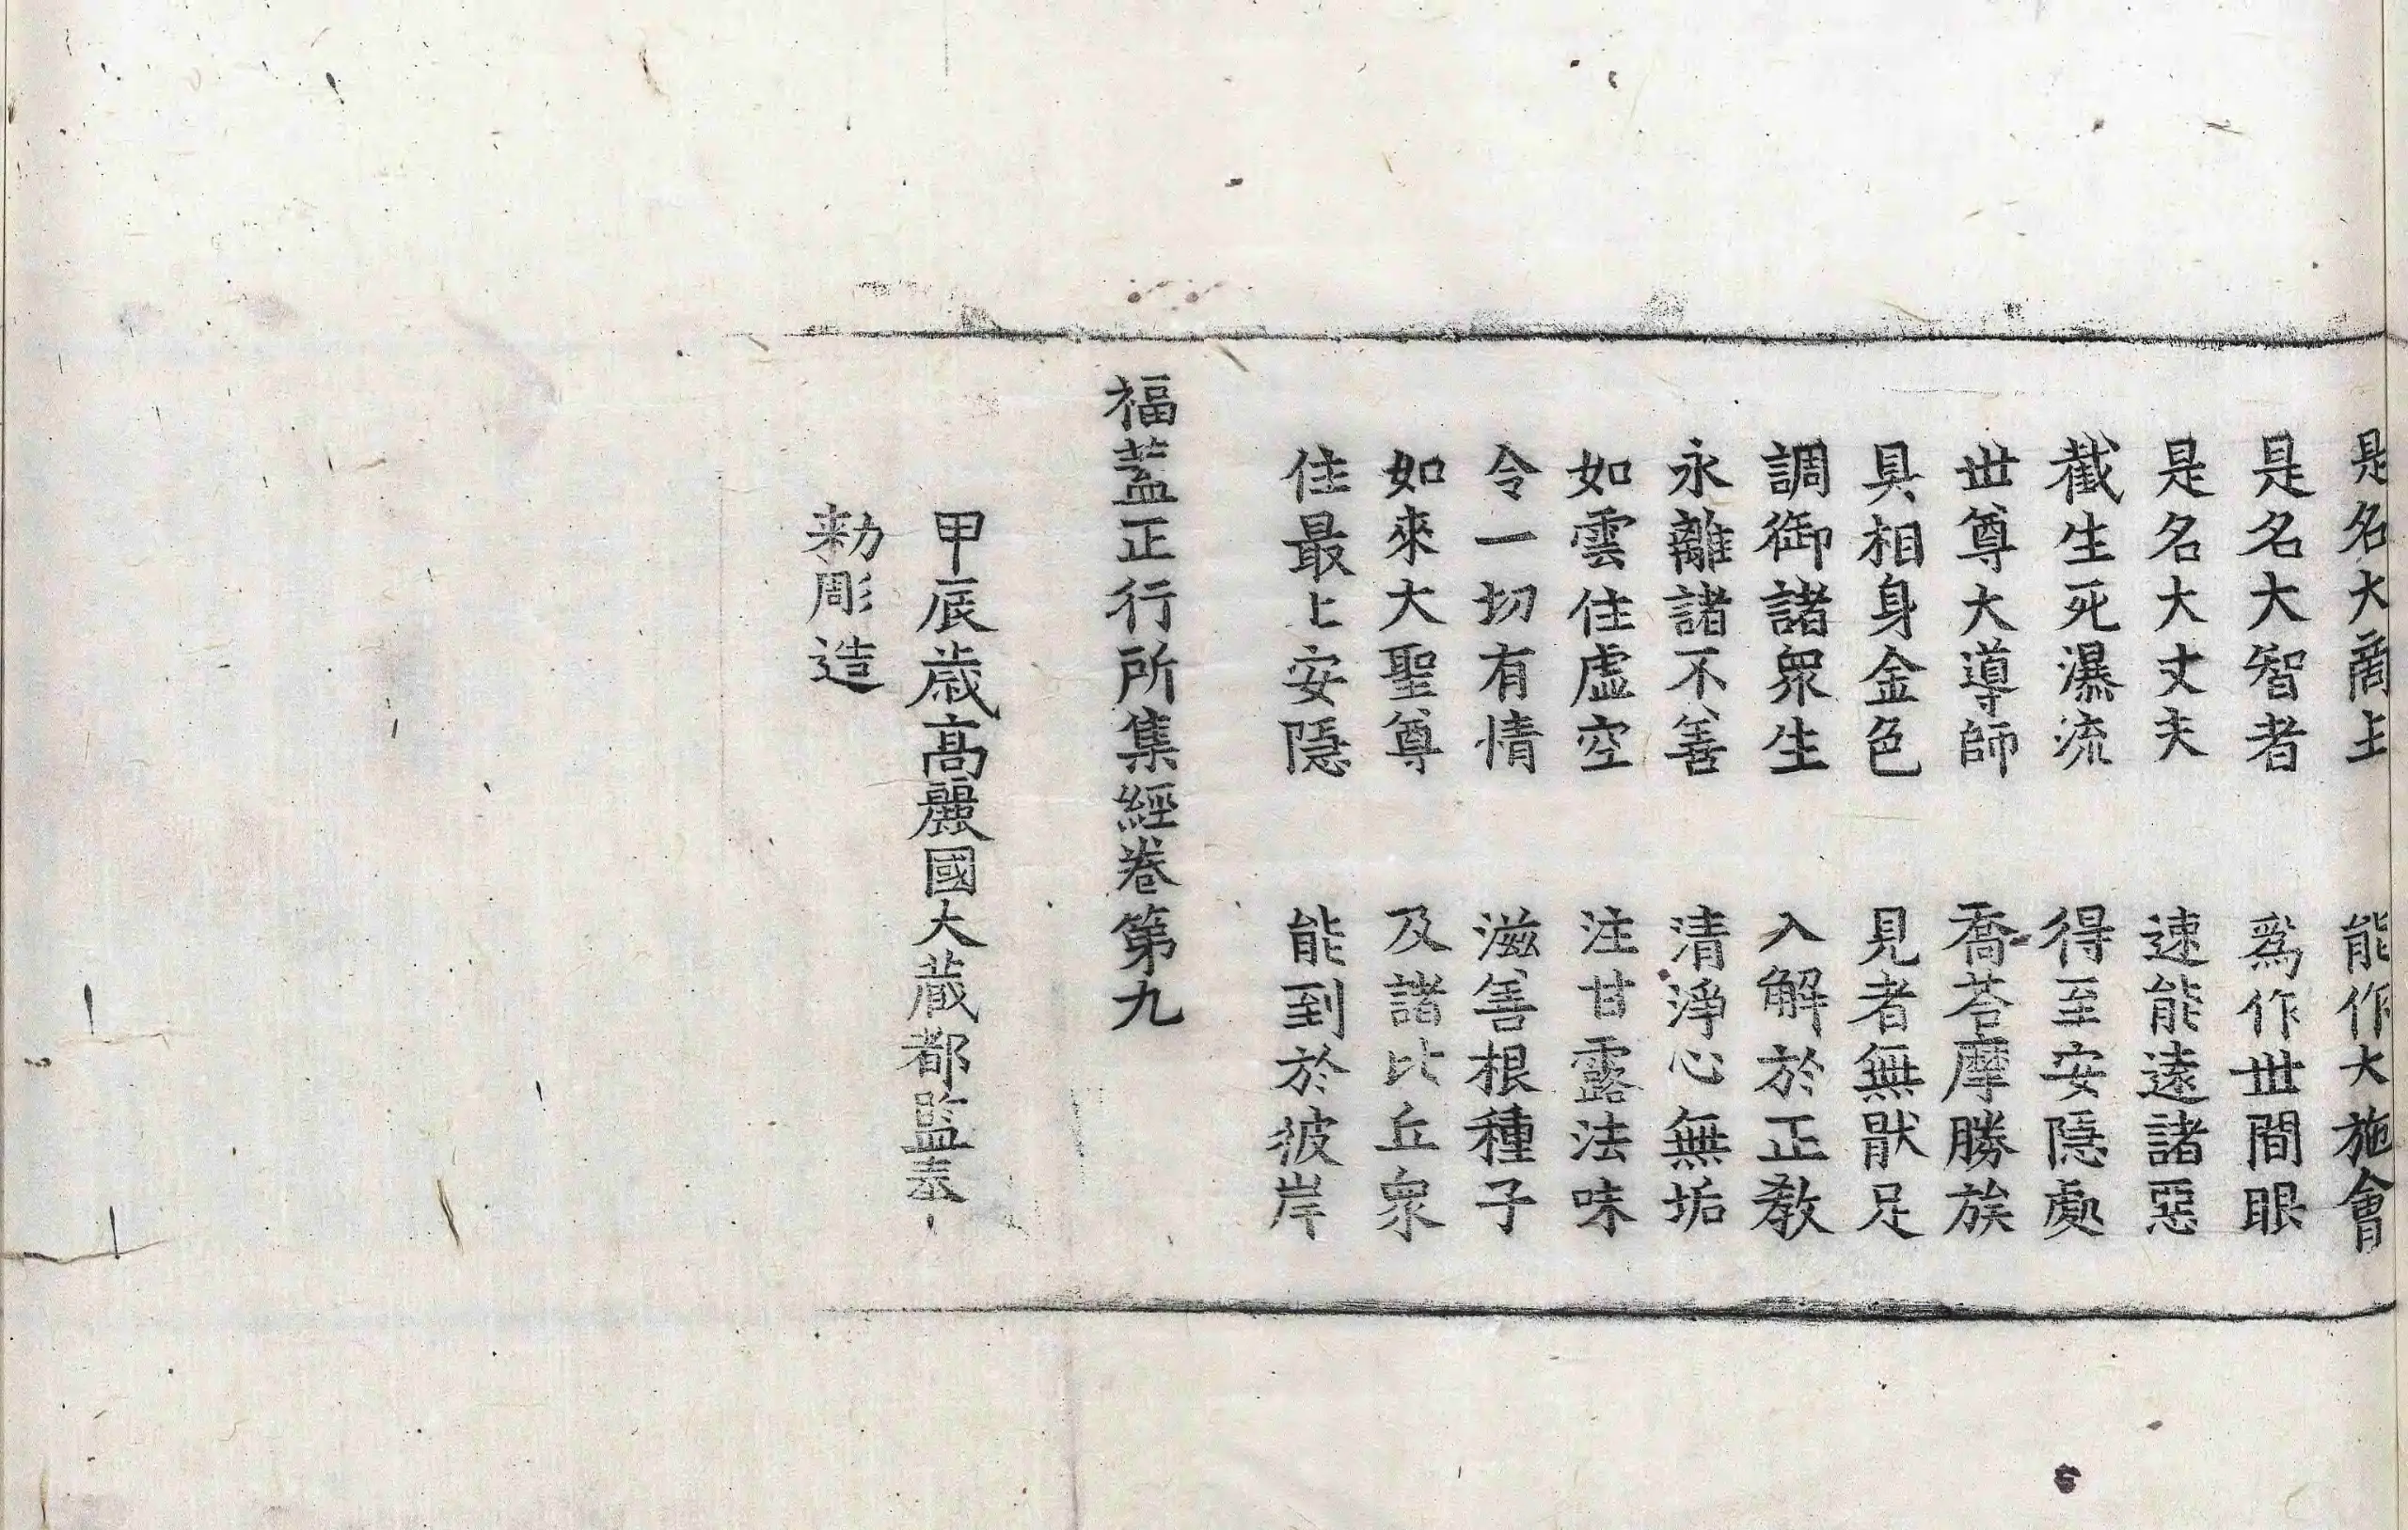 是名大商主　能作大施會
是名大智者　爲作世間眼
是名大丈夫　速能遠諸惡
截生死瀑流　得至安隱處
世尊大導師　喬荅摩勝族
具相身金色　見者無猒足
調御諸衆生　入解於正教
永離諸不善　清淨心無垢
如雲住虛空　注甘露法味
令一切有情　滋善根種子
如來大聖尊　及諸比丘衆
住最上安隱　能到於彼岸
福蓋正行所集經卷第九
甲辰歲高麗國大藏都監奉
勑彫造